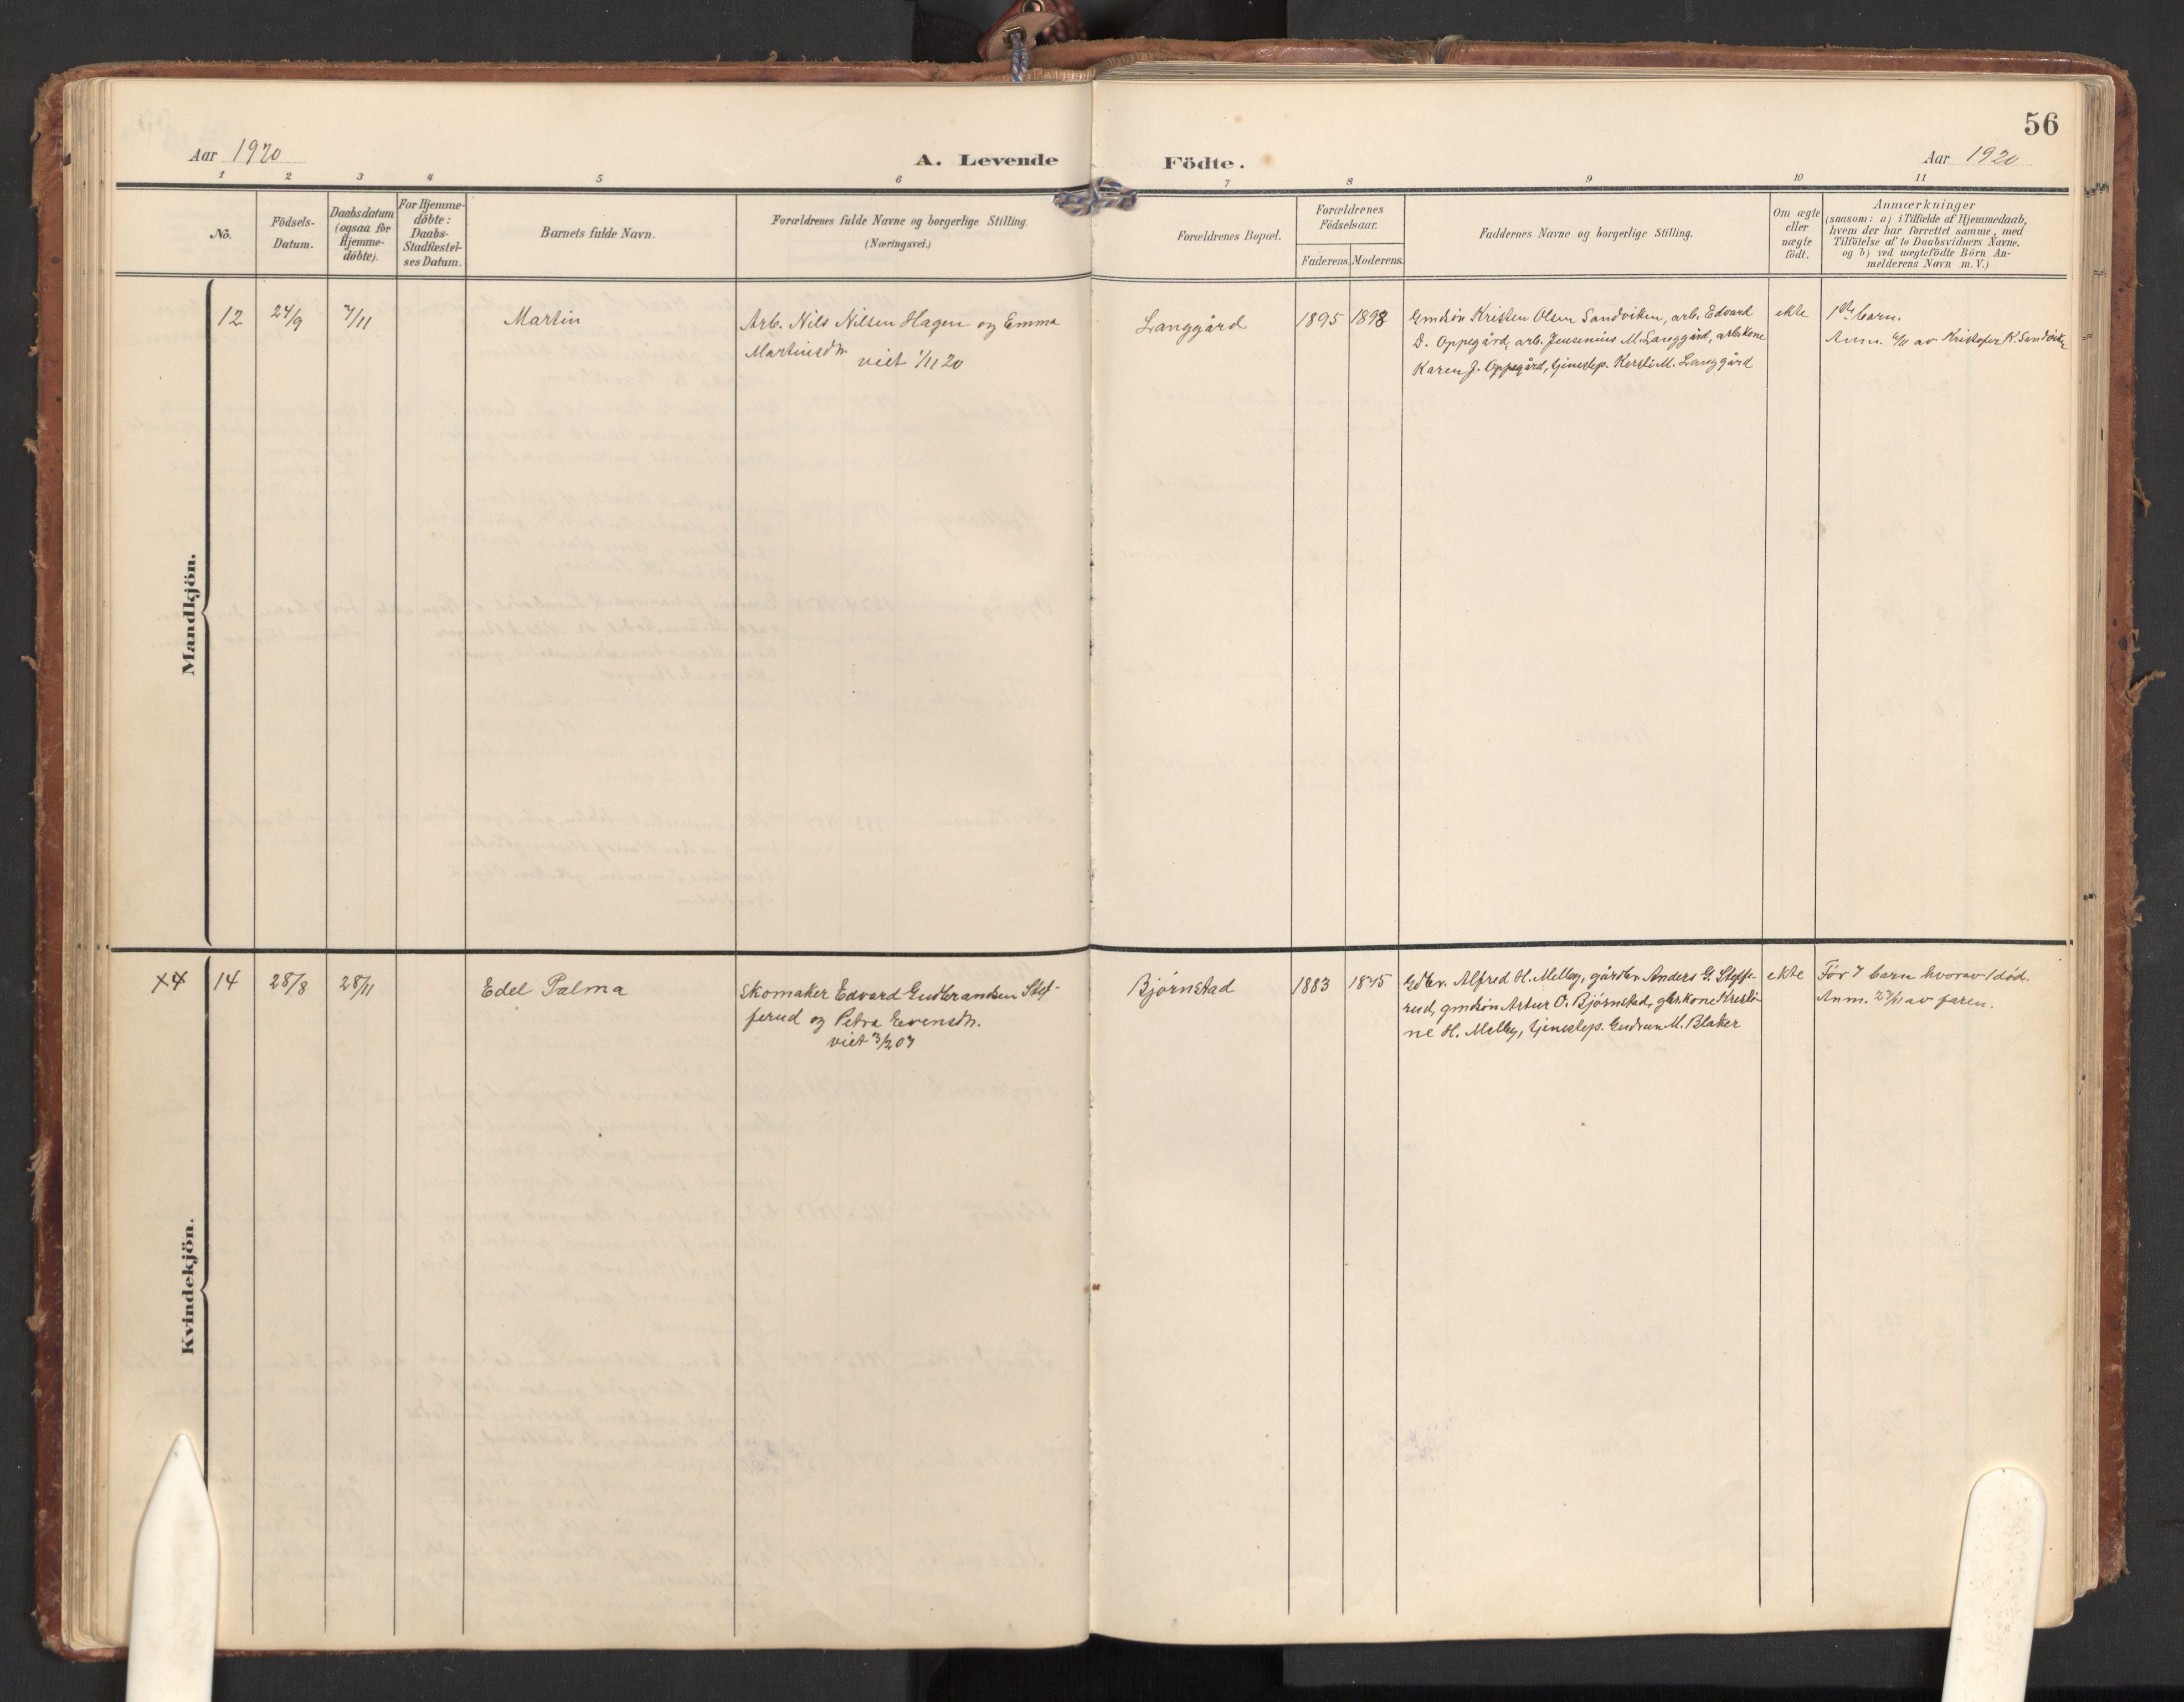 56
Aar 1920
A. Levende Födte.
Aar 1920
1 2 3 4 5 6 7 8 9 10 11
No.
Födsels-
Datum.
Daabsdatum
(ogsaa for
Hjemme-
döbte).
For Hjemme-
döbte:
Daabs-
Stadfæstel-
ses Datum.
Barnets fulde Navn.
Forældrenes fulde Navne og borgerlige Stilling.
(Næringsvei.)
Forældrenes Bopæl.
Forældrenes
Födselsaar.
Faderens. Moderens.
Faddernes Navne og borgerlige Stilling.
Om ægte
eller
uægte
födt.
Anmærkninger
(saasom: a) i Tilfælde af Hjemmedaab,
hvem der har forrettet samme, med
Tilföielse af to Daabsvidners Navne.
og b) ved uægtefödte Börn An-
melderens Navn m. V.)
Mandkjön.
12
24/9
7/11
Martin
Arb. Nils Nilsen Hagen og Emma
Martinsdtr.
viet 1/11 20
Langgård
1895
1898
Gmdsön Kristen Olsen Sandviken, arb. Edvard
D. Oppegård, arb. Jensenius M. Langgård, arb.kone
Karen J. Oppegård, tjenestep. Kersti M. Langgård
ekte
1ste barn.
Anm. 6/11 av Kristofer K. Sandvik
Kvindekjön.
14
28/8
28/11
Edel Palma
Skomaker Edvard Gudbrandsen Stef-
ferud og Petra Evensdtr.
viet 3/2 07
Bjørnstad
1883
1875
Gdbr. Alfred H. Melby, gårdbr. Anders G. Steffe-
rud, gmdsön Artur O. Bjørnstad, gbr.kone Kristi-
ne H. Melby, tjenestep. Gudrun M. Blaker
ekte
Før 7 barn hvorav 1 död.
Anm. 27/11 av faren.